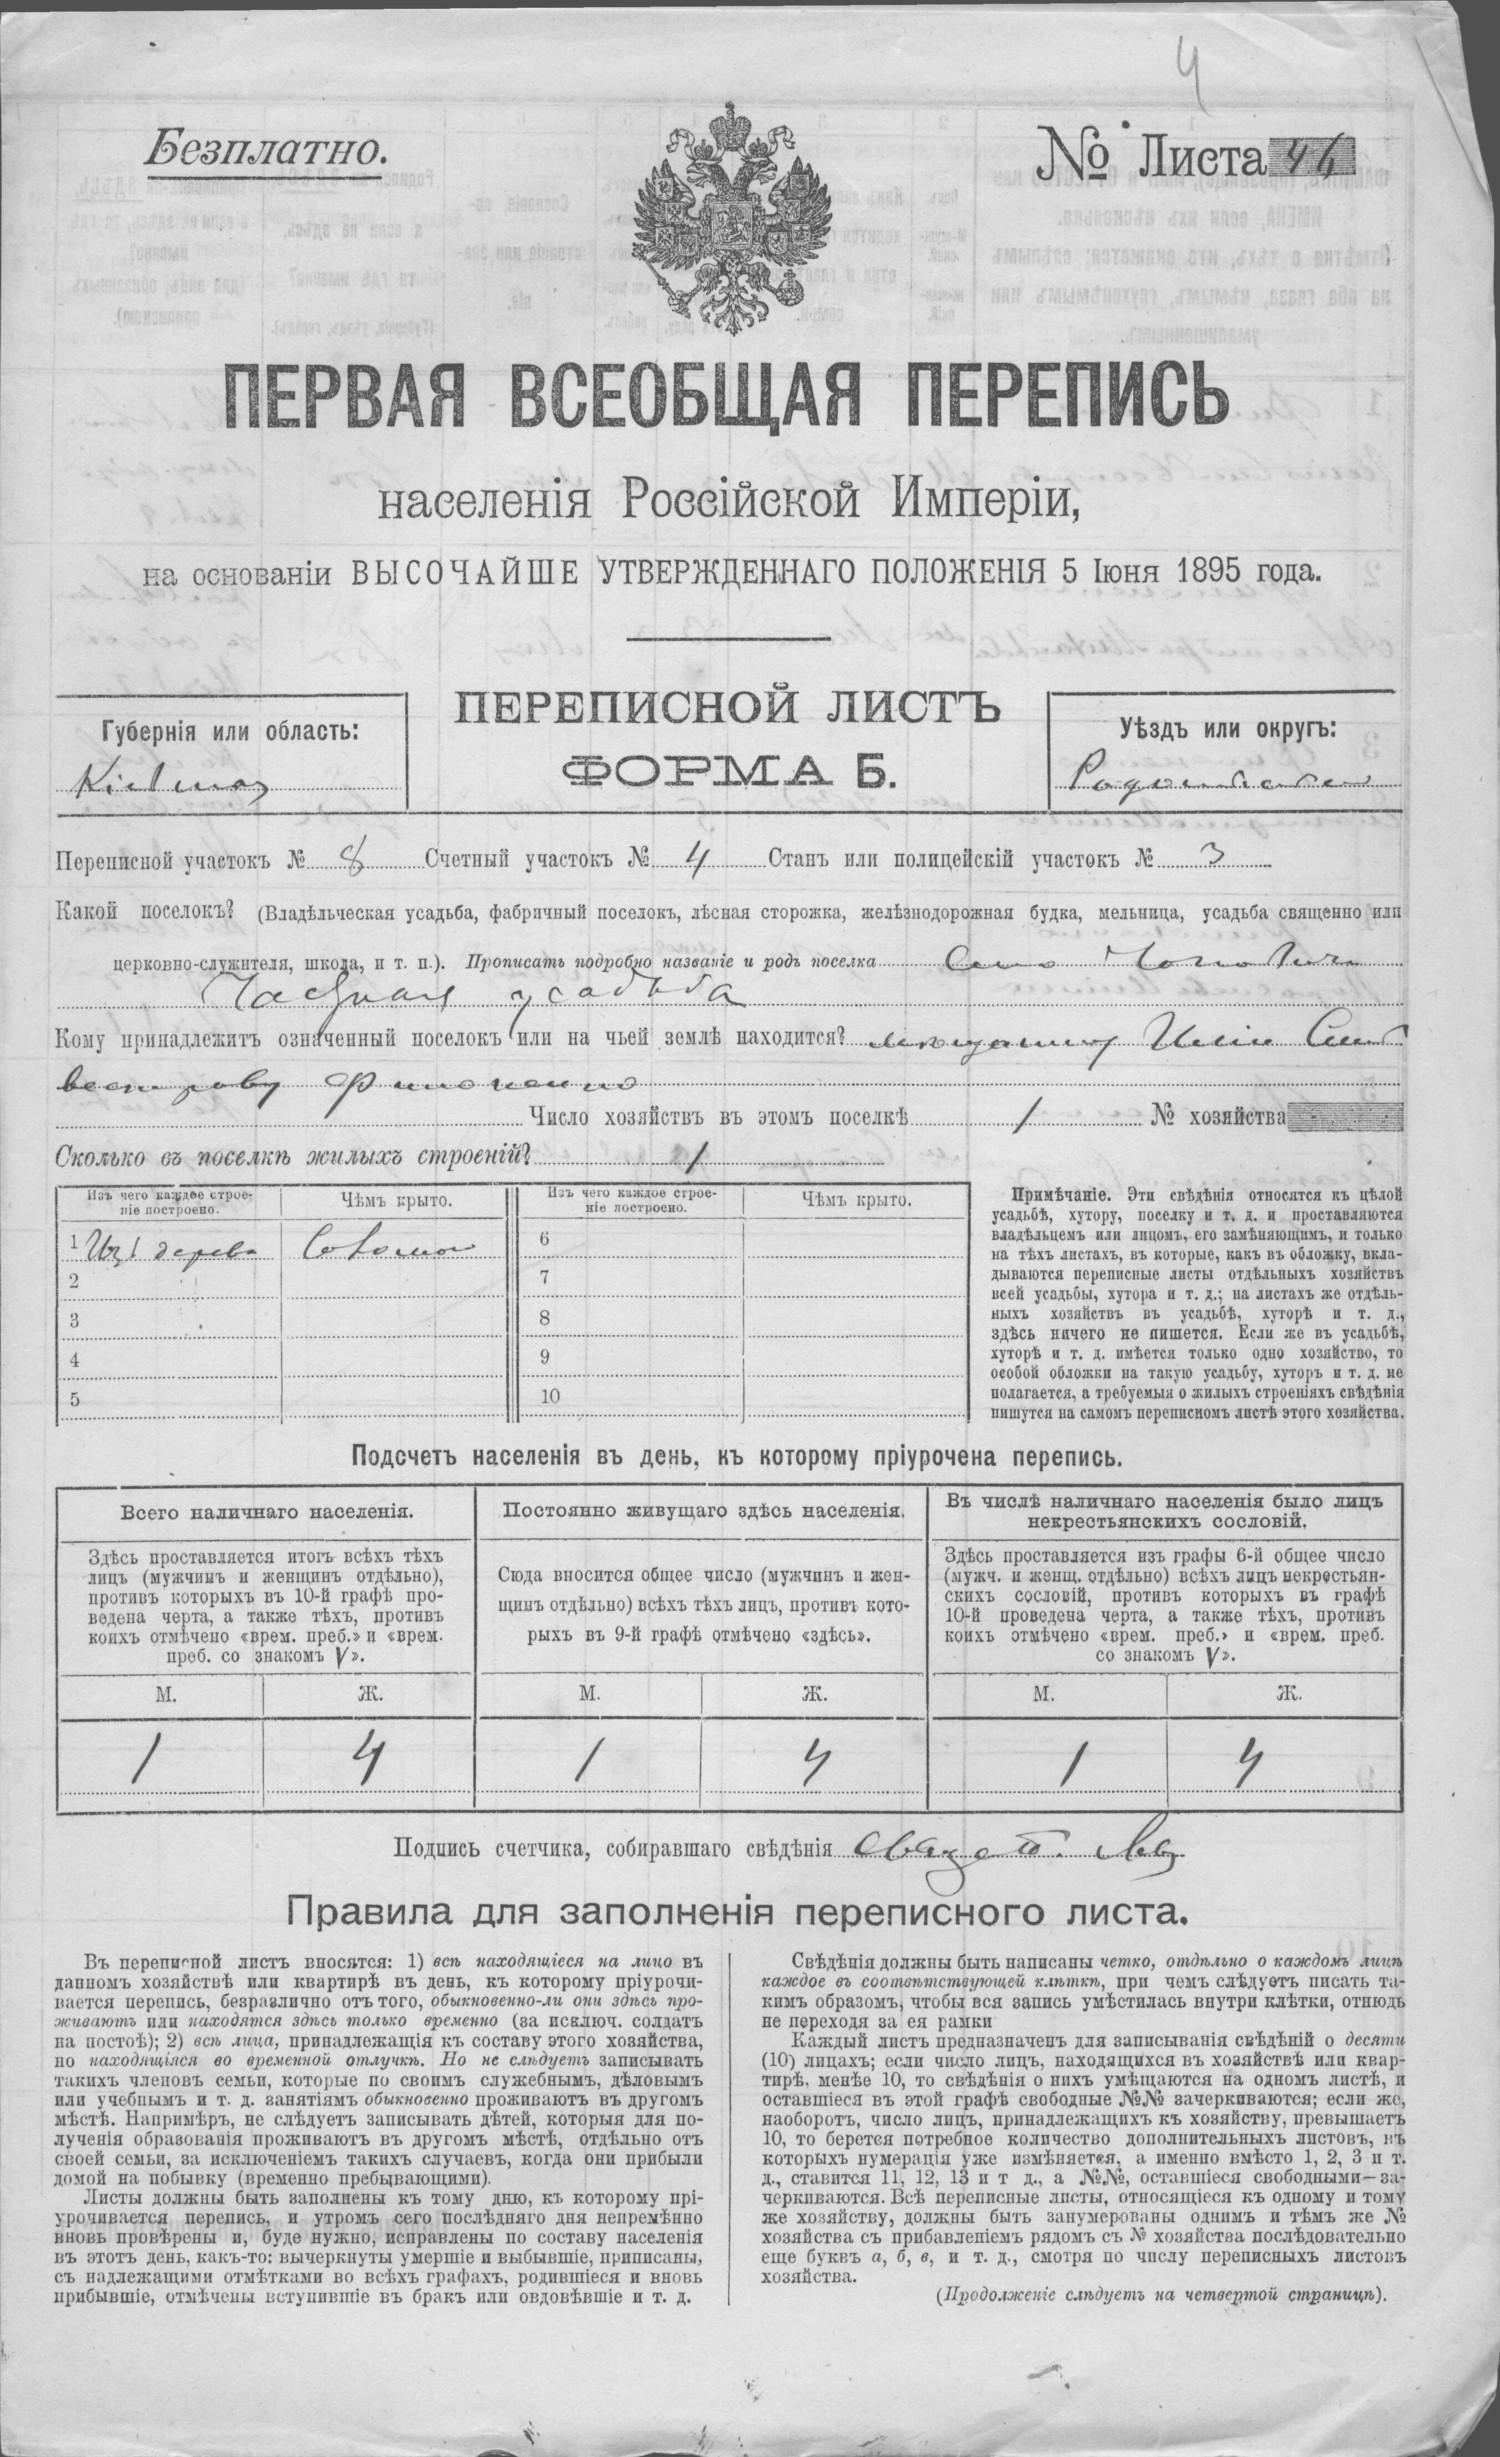 4
Безплатно.
№ Листа 44
ПЕРВАЯ ВСЕОБЩАЯ ПЕРЕПИСЬ
населенія Россійской Имперіи,
на основаніи ВЫСОЧАЙШЕ УТВЕРЖДЕННАГО ПОЛОЖЕНІЯ 5 Іюня 1895 года.
ПЕРЕПИСНОЙ ЛИСТЪ
ФОРМА Б.
Губернія или область:
Кіевская
Уѣздъ или округъ:
Радомысльскій
Переписной участокъ № 8 Счетный участокъ № 4 Станъ или полицейскій участокъ № 3
Какой поселокъ? (Владѣльческая усадьба, фабричный поселокъ, лѣсная сторожка, желѣзнодорожная будка, мельница, усадьба священно или
церковно-служителя, школа, и т. п.). Прописать подробно названіе и родъ поселка Село
Частная усадьба
Кому принадлежитъ означенный поселокъ или на чьей землѣ находится? мѣщанину
Число хозяйствъ въ этомъ поселкѣ 1 № хозяйства
Сколько въ поселкѣ жилыхъ строеній? 1
Изъ чего каждое строе-
ніе построено.
Чѣмъ крыто.
Изъ чего каждое строе-
ніе построено.
Чѣмъ крыто.
1 Изъ дерева Соломою
2
3
4
5
6
7
8
9
10
Примѣчаніе. Эти свѣдѣнія относятся къ цѣлой
усадьбѣ, хутору, поселку и т. д. и проставляются
владѣльцемъ или лицомъ, его замѣняющимъ, и только
на тѣхъ листахъ, въ которые, какъ въ обложку, вкла-
дываются переписные листы отдѣльныхъ хозяйствъ
всей усадьбы, хутора и т. д.; на листахъ же отдѣль-
ныхъ хозяйствъ въ усадьбѣ, хуторѣ и т. д.,
здѣсь ничего не пишется. Если же въ усадьбѣ,
хуторѣ и т. д. имѣется только одно хозяйство, то
особой обложки на такую усадьбу, хуторъ и т. д. не
полагается, а требуемыя о жилыхъ строеніяхъ свѣдѣнія
пишутся на самомъ переписномъ листѣ этого хозяйства.
Подсчетъ населенія въ день, къ которому пріурочена перепись.
Всего наличнаго населенія.
Здѣсь проставляется итогъ всѣхъ тѣхъ
лицъ (мужчинъ и женщинъ отдѣльно),
противъ которыхъ въ 10-й графѣ про-
ведена черта, а также тѣхъ, противъ
коихъ отмѣчено «врем. преб.» и «врем.
преб. со знакомъ V».
М. Ж.
1 4
Постоянно живущаго здѣсь населенія.
Сюда вносится общее число (мужчинъ и жен-
щинъ отдѣльно) всѣхъ тѣхъ лицъ, противъ кото-
рыхъ въ 9-й графѣ отмѣчено «здѣсь».
М. Ж.
1 4
Въ числѣ наличнаго населенія было лицъ
некрестьянскихъ сословій.
Здѣсь проставляется изъ графы 6-й общее число
(мужч. и женщ. отдѣльно) всѣхъ лицъ некрестьян-
скихъ сословій, противъ которыхъ въ графѣ
10-й проведена черта, а также тѣхъ, противъ
коихъ отмѣчено «врем. преб.» и «врем. преб.
со знакомъ V».
М. Ж.
1 4
Подпись счетчика, собиравшаго свѣдѣнія
Правила для заполненія переписного листа.
Въ переписной листъ вносятся: 1) всѣ находящіеся на лицо въ
данномъ хозяйствѣ или квартирѣ въ день, къ которому пріурочи-
вается перепись, безразлично отъ того, обыкновенно-ли они здѣсь про-
живаютъ или находятся здѣсь только временно (за исключ. солдатъ
на постоѣ); 2) всѣ лица, принадлежащія къ составу этого хозяйства,
но находящіяся во временной отлучкѣ. Но не слѣдуетъ записывать
такихъ членовъ семьи, которые по своимъ служебнымъ, дѣловымъ
или учебнымъ и т. д. занятіямъ обыкновенно проживаютъ въ другомъ
мѣстѣ. Напримѣръ, не слѣдуетъ записывать дѣтей, которыя для по-
лученія образованія проживаютъ въ другомъ мѣстѣ, отдѣльно отъ
своей семьи, за исключеніемъ такихъ случаевъ, когда они прибыли
домой на побывку (временно пребывающими).
Листы должны быть заполнены къ тому дню, къ которому прі-
урочивается перепись, и утромъ сего послѣдняго дня непремѣнно
вновь провѣрены и, буде нужно, исправлены по составу населенія
въ этотъ день, какъ-то: вычеркнуты умершіе и выбывшіе, приписаны,
съ надлежащими отмѣтками во всѣхъ графахъ, родившіеся и вновь
прибывшіе, отмѣчены вступившіе въ бракъ или овдовѣвшіе и т. д.
Свѣдѣнія должны быть написаны четко, отдѣльно о каждомъ лицѣ
каждое въ соотвѣтствующей клѣткѣ, при чемъ слѣдуетъ писать та-
кимъ образомъ, чтобы вся запись умѣстилась внутри клѣтки, отнюдь
не переходя за ея рамки
Каждый листъ предназначенъ для записыванія свѣдѣній о десяти
(10) лицахъ; если число лицъ, находящихся въ хозяйствѣ или квар-
тирѣ, менѣе 10, то свѣдѣнія о нихъ умѣщаются на одномъ листѣ, и
оставшіеся въ этой графѣ свободные №№ зачеркиваются; если же,
наоборотъ, число лицъ, принадлежащихъ къ хозяйству, превышаетъ
10, то берется потребное количество дополнительныхъ листовъ, въ
которыхъ нумерація уже измѣняется, а именно вмѣсто 1, 2, 3 и т.
д., ставится 11, 12, 13 и т д., а №№, оставшіеся свободными—за-
черкиваются. Всѣ переписные листы, относящіеся къ одному и тому
же хозяйству, должны быть занумерованы однимъ и тѣмъ же №
хозяйства съ прибавленіемъ рядомъ съ № хозяйства послѣдовательно
еще буквъ а, б, в, и т. д., смотря по числу переписныхъ листовъ
хозяйства.
(Продолженіе слѣдуетъ на четвертой страницѣ).